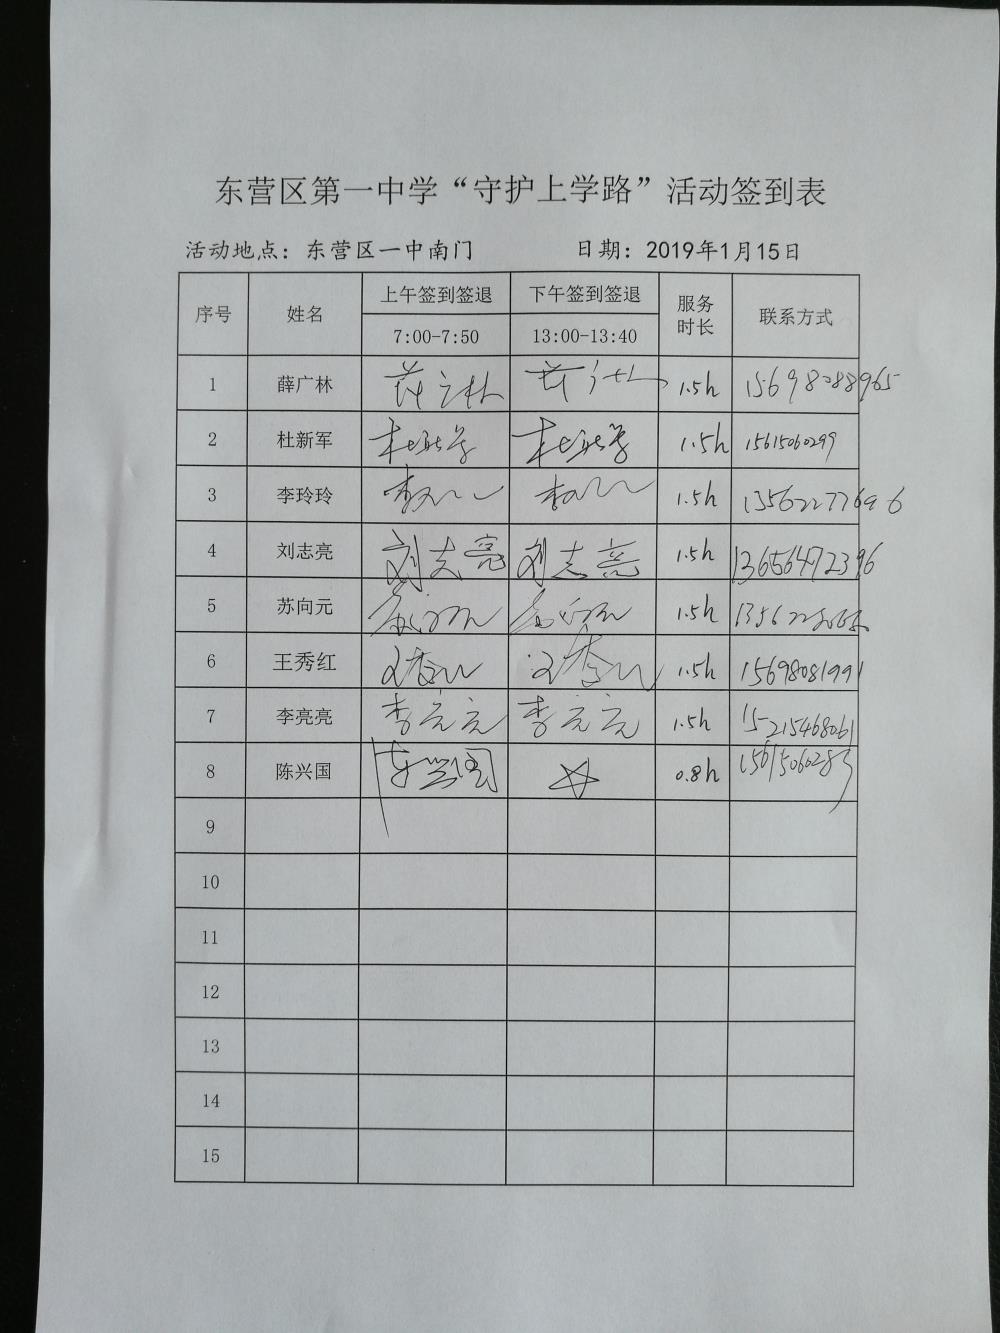 东营区第一中学“守护上学路”活动签到表
活动地点：东营区一中南门 日期：2019年1月15日
序号 姓名 上午签到签退 下午签到签退 服务时长 联系方式
7:00-7:50 13:00-13:40
1 薛广林 薛广林 薛广林 1.5h 15698288965
2 杜新军 杜新军 杜新军 1.5h 15615060299
3 李玲玲 李玲玲 李玲玲 1.5h 13562277696
4 刘志亮 刘志亮 刘志亮 1.5h 13656472396
5 苏向元 苏向元 苏向元 1.5h
6 王秀红 王秀红 王秀红 1.5h 15698081991
7 李亮亮 李亮亮 李亮亮 1.5h 15215468061
8 陈兴国 陈兴国 0.8h 15615060283
9
10
11
12
13
14
15